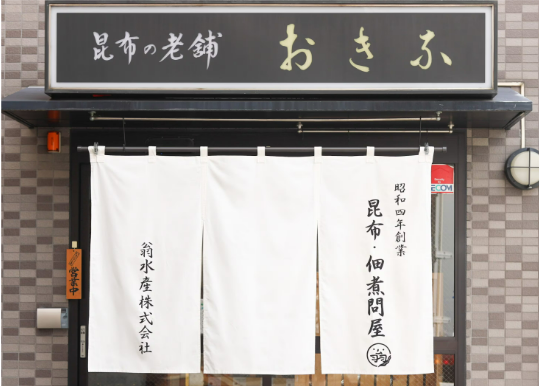 昆布の老舗 おきな
昭和四年創業
昆布・佃煮問屋
翁水産株式会社
営業中
ECOM